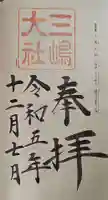 奉拝
三嶋
大社
令和五年
十二月七日